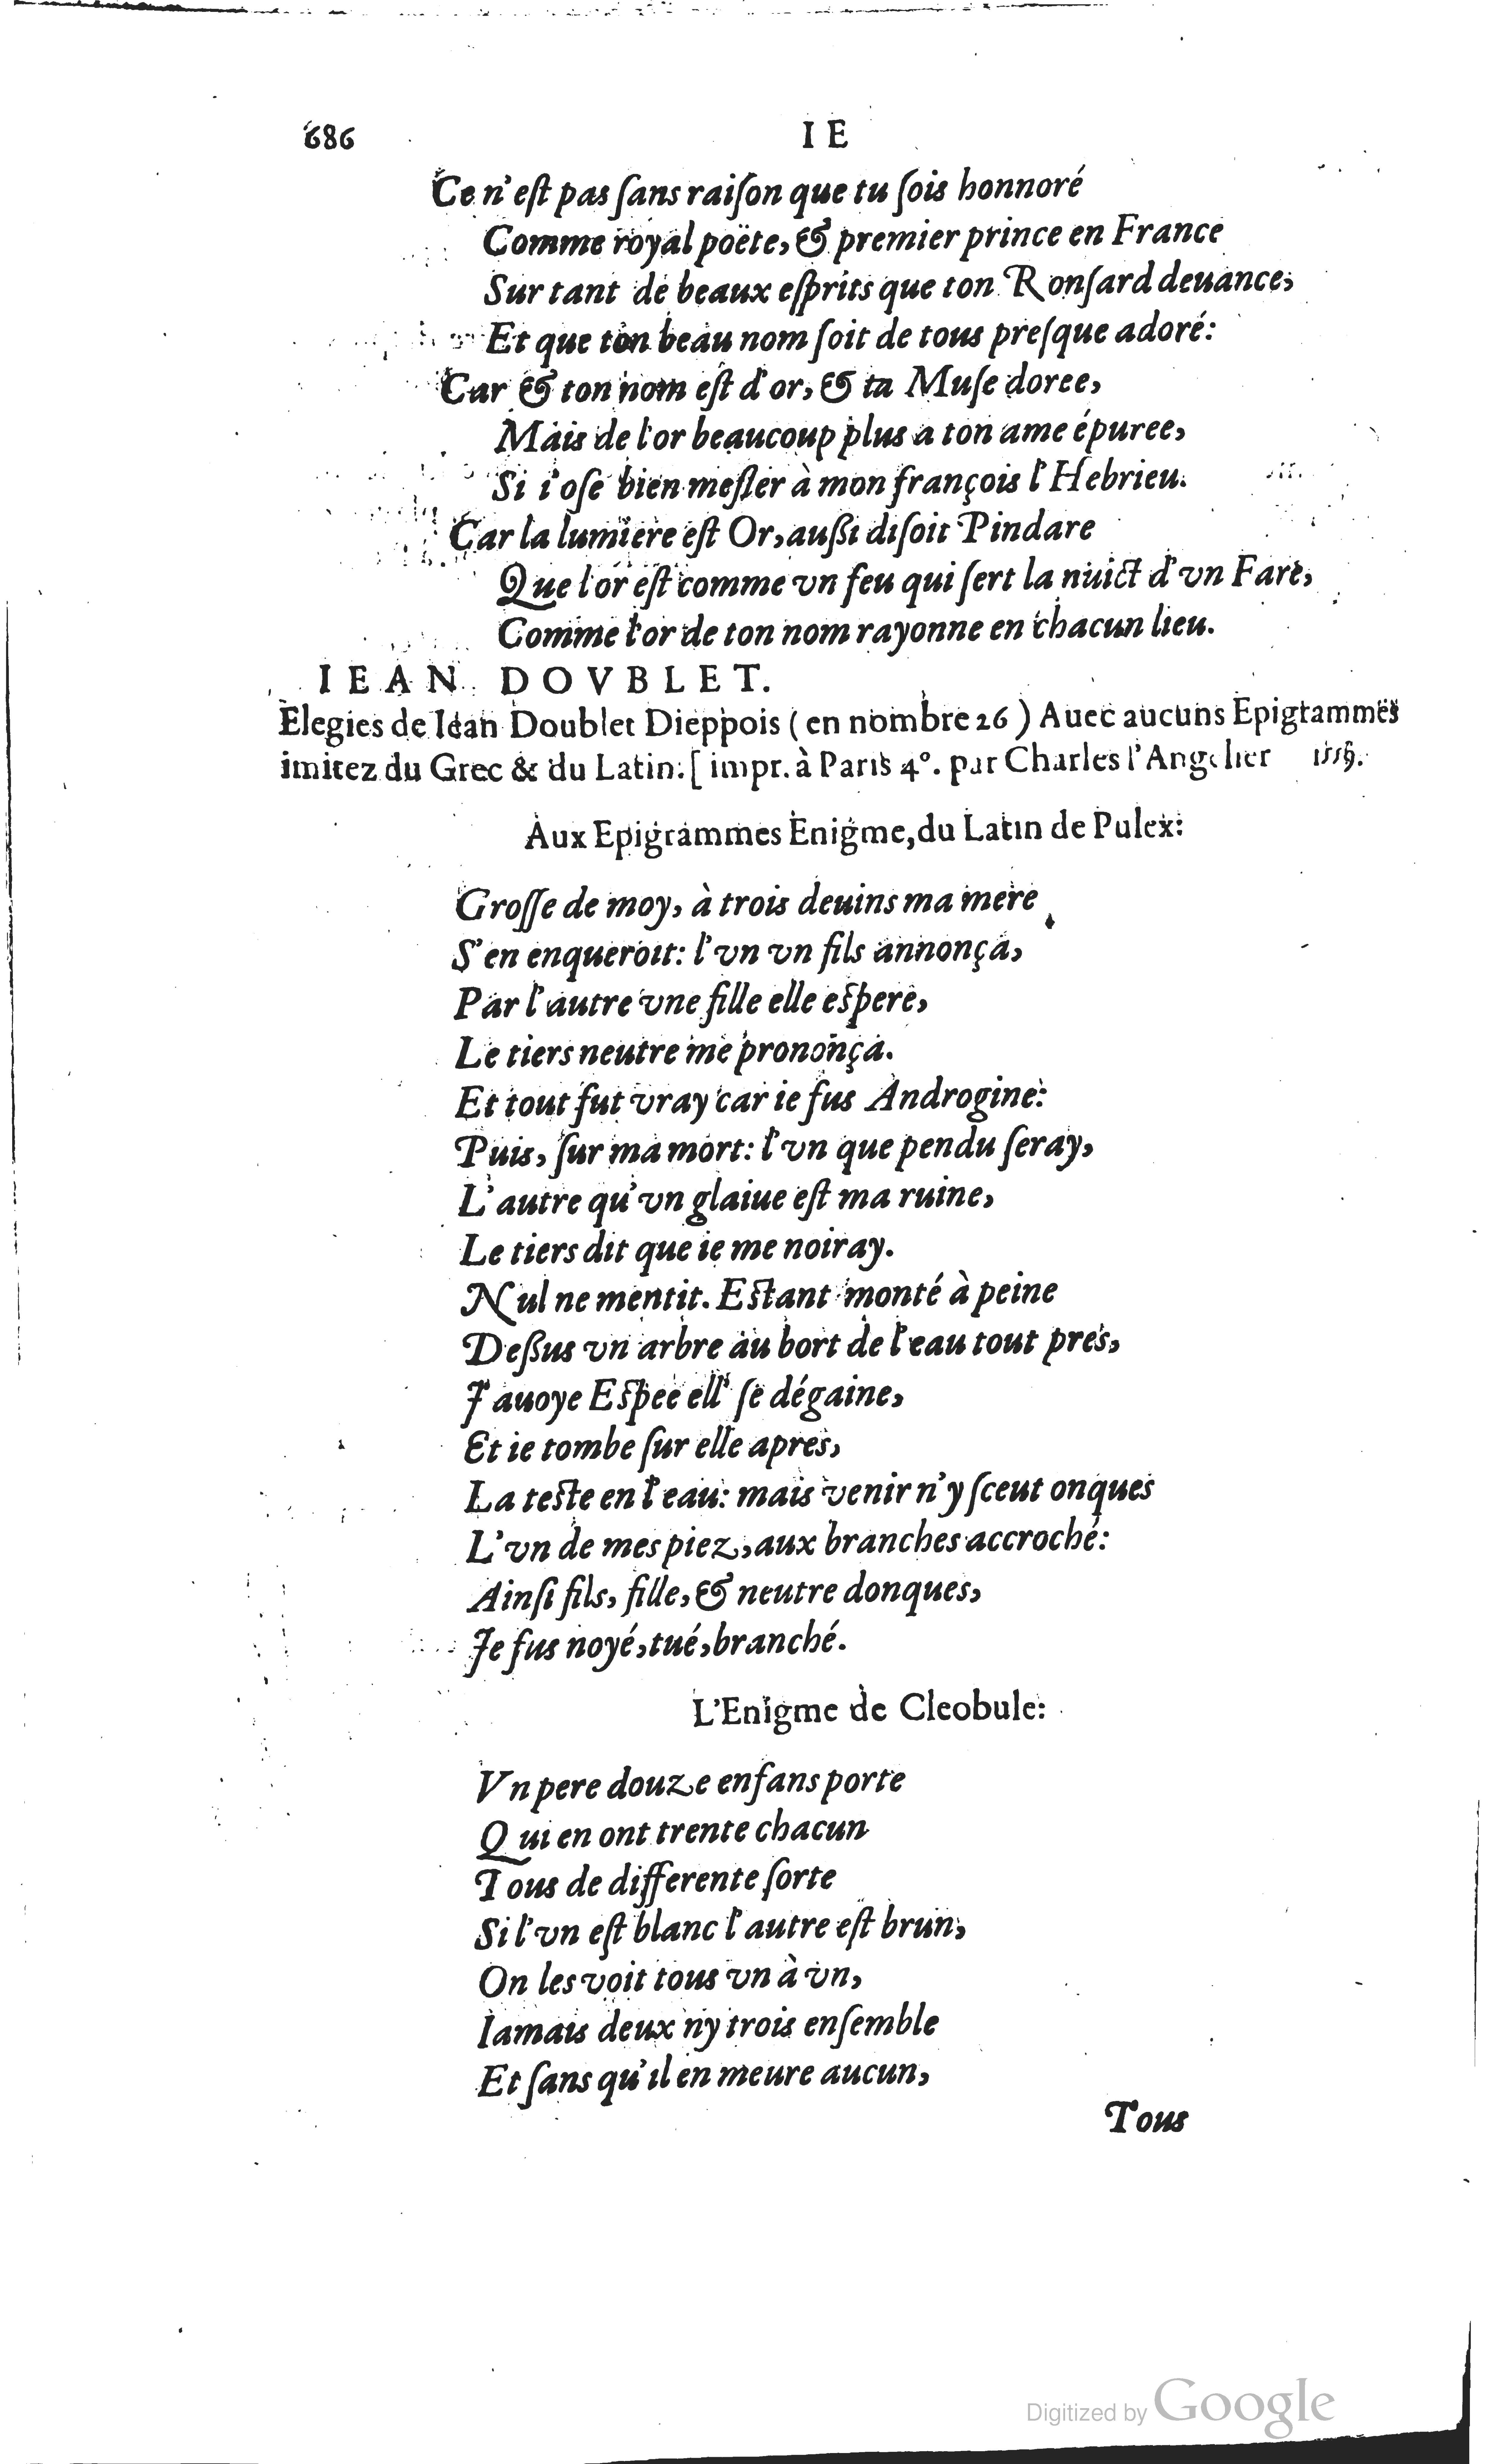 686 I E
Ce n'eſt pas ſans raiſon que tu ſois honnoré
Comme royal poëte, & premier prince en France
Sur tant de beaux eſprits que ton Ronſard deuance,
Et que ton beau nom ſoit de tous preſque adoré:
Car & ton nom eſt d'or, & ta Muſe doree,
Mais de l'or beaucoup plus a ton ame épuree,
Si i'oſe bien meſler à mon françois l'Hebrieu.
Car la lumiere eſt Or, außi diſoit Pindare
Que l'or eſt comme vn feu qui ſert la nuict d'vn Fare,
Comme l'or de ton nom rayonne en chacun lieu.
IEAN DOVBLET.
Elegies de Iean Doublet Dieppois (en nombre 26) Auec aucuns Epigrammes
imitez du Grec & du Latin: [impr. à Paris 4°. par Charles l'Angelier
Aux Epigrammes Enigme, du Latin de Pulex:
Groſſe de moy, à trois deuins ma mere
S'en enqueroit: l'vn vn fils annonça,
Par l'autre vne fille elle eſpere,
Le tiers neutre me prononça.
Et tout fut vray car ie fus Androgine:
Puis, ſur ma mort: l'vn que pendu ſeray,
L'autre qu'vn glaiue eſt ma ruine,
Le tiers dit que ie me noiray.
Nul ne mentit. Eſtant monté à peine
Deßus vn arbre au bort de l'eau tout pres,
J'auoye Eſpee ell' ſe dégaine,
Et ie tombe ſur elle apres,
La teſte en l'eau: mais venir n'y ſceut onques
L'vn de mes piez, aux branches accroché:
Ainſi fils, fille, & neutre donques,
Je fus noyé, tué, branché.
L'Enigme de Cleobule:
Vn pere douze enfans porte
Qui en ont trente chacun
Tous de differente ſorte
Si l'vn eſt blanc l'autre eſt brun,
On les voit tous vn à vn,
Iamais deux ny trois enſemble
Et ſans qu'il en meure aucun,
Tous
Digitized by Google